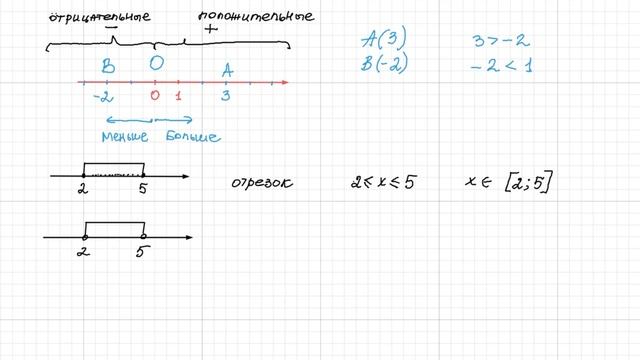 отрицательные положительные
− +
A(3) 3 > -2
B O A
B(-2) -2 < 1
-2 0 1 3
Меньше Больше
2 5 отрезок 2 ≤ x ≤ 5 x ∈ [2; 5]
2 5